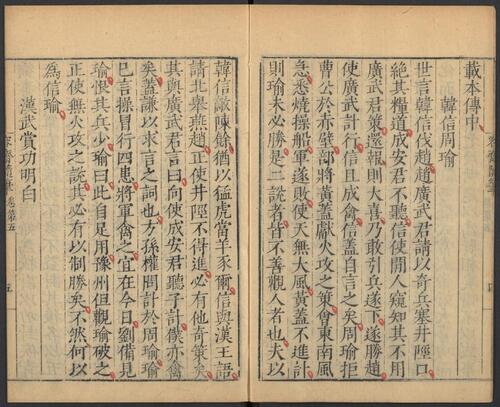 載本傳中
韓信周瑜
世言韓信伐趙趙廣武君請以奇兵塞井陘口
絕其糧道成安君不聽信使間人窺知其不用
廣武君策還報則大喜乃敢引兵遂下遂勝趙
使廣武計行信且成禽信蓋自言之矣周瑜拒
曹公於赤壁部將黃蓋獻火攻之策會東南風
急悉燒操船軍遂敗使天無大風黃蓋不進計
則瑜未必勝是二說者皆不善觀人者也夫以
韓信敵陳餘猶以猛虎當羊豕爾信與漢王語
請北舉燕趙正使井陘不得進必有他奇策矣
其與廣武君言曰向使成安君聽子計僕亦禽
矣蓋謙以求言之詞也方孫權問計於周瑜瑜
已言操冒行四患將軍禽之宜在今日劉備見
瑜恨其兵少瑜曰此自足用豫州但觀瑜破之
正使無火攻之說其必有以制勝矣不然何以
為信瑜
漢武賞功明白
容齋隨筆 卷第五
五